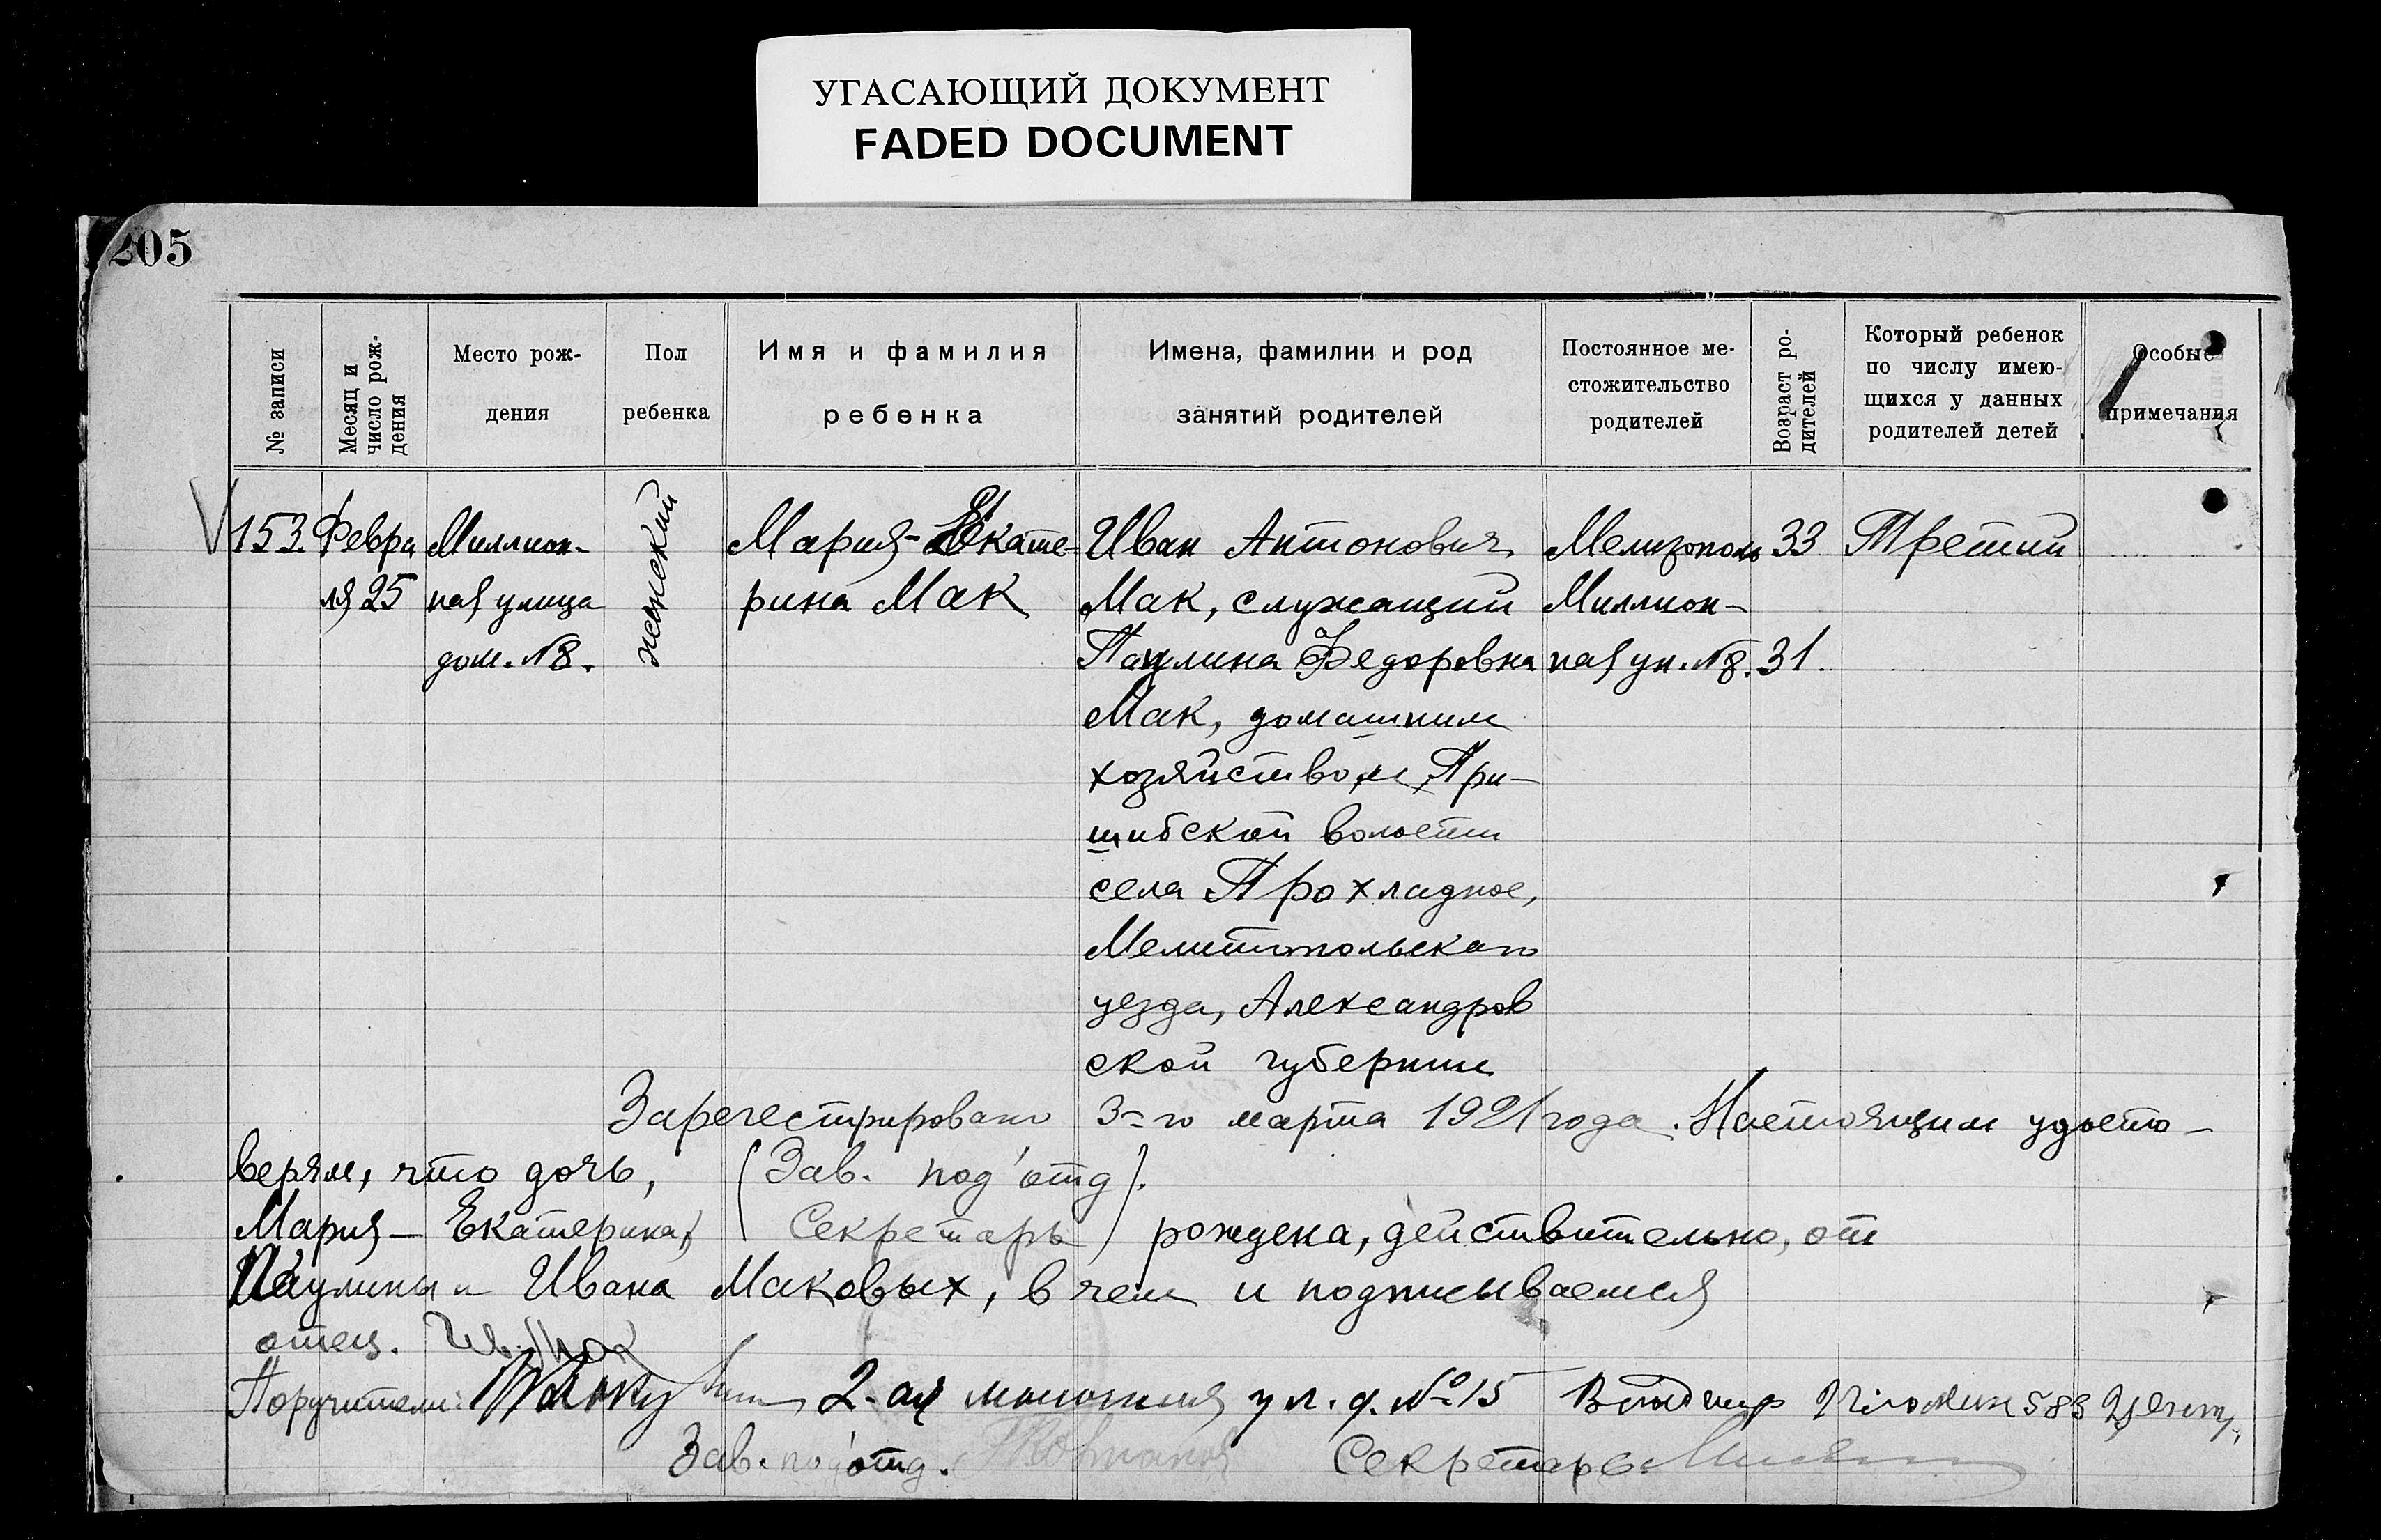 УГАСАЮЩИЙ ДОКУМЕНТ
FADED DOCUMENT
205
№ записи
Месяц и
число рож-
дения
Место рож-
дения
Пол
ребенка
Имя и фамилия
ребенка
Имена, фамилии и род
занятий родителей
Постоянное ме-
стожительство
родителей
Возраст ро-
дителей
Который ребенок
по числу имею-
щихся у данных
родителей детей
Особые
примечания
153.
Февра
ля 25
Миллион-
ная улица
дом. №8.
женский
Мария-Екате-
рина Мак
Иван Антонович
Мак, служащий
Паулина Федоровна
Мак, домашним
хозяйством При-
шибской волости
села Прохладное,
Мелитопольскаго
уезда, Александров
ской губернии
Мелитополь
Миллион-
ная ул. №8.
33
31.
Третий
Зарегестрировано 3=го марта 1921 года. Настоящим удосто-
веряем, что дочь, (Зав. под'отд).
Мария-Екатерина, (Секретарь) рождена, действительно, от
Паулины и Ивана Маковых, в чем и подписываемся
отец. Ив. Мак
Поручители: 2-ая ул. д. №15
Зав. под'отд. Секретарь: